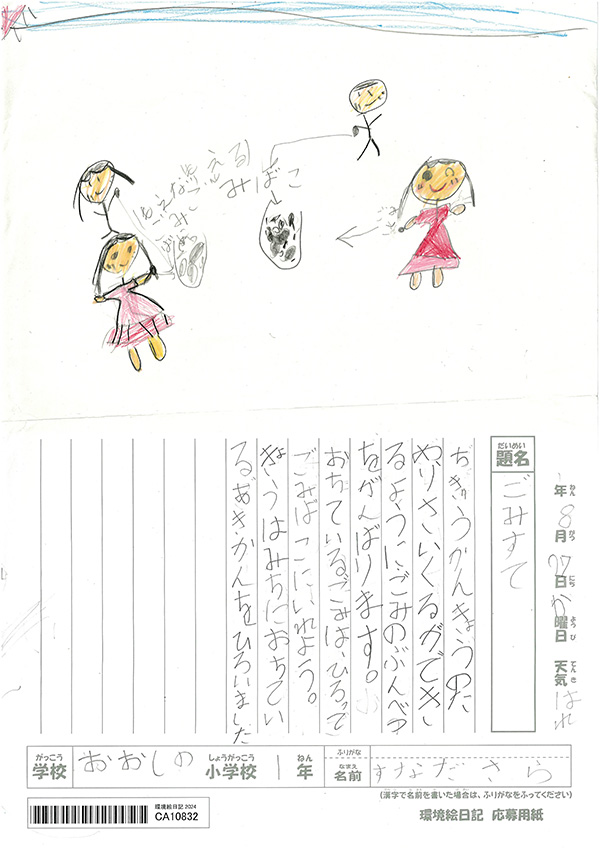 もえる
みばこ
ごみ
だいめい
題名
ごみすて
年 8月 27日 か曜日 天気 はれ
ねん がつ にち ようび てんき
ちきゅうかんきょうのた
め、りさいくるができ
るようにごみのぶんべつ
をがんばります。
おちているごみは、ひろって
ごみばこにいれよう。
きょうはみちにおちてい
るあきかんをひろいました
がっこう しょうがっこう ねん ふりがな なまえ
学校 おおしの 小学校 1年 名前 すなださら
(漢字で名前を書いた場合は、ふりがなをふってください)
環境絵日記 2024
CA10832
環境絵日記 応募用紙